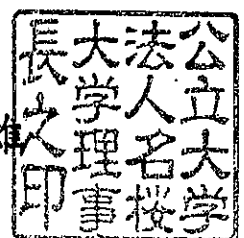 公立大学
法人名桜
大学理事
長之印